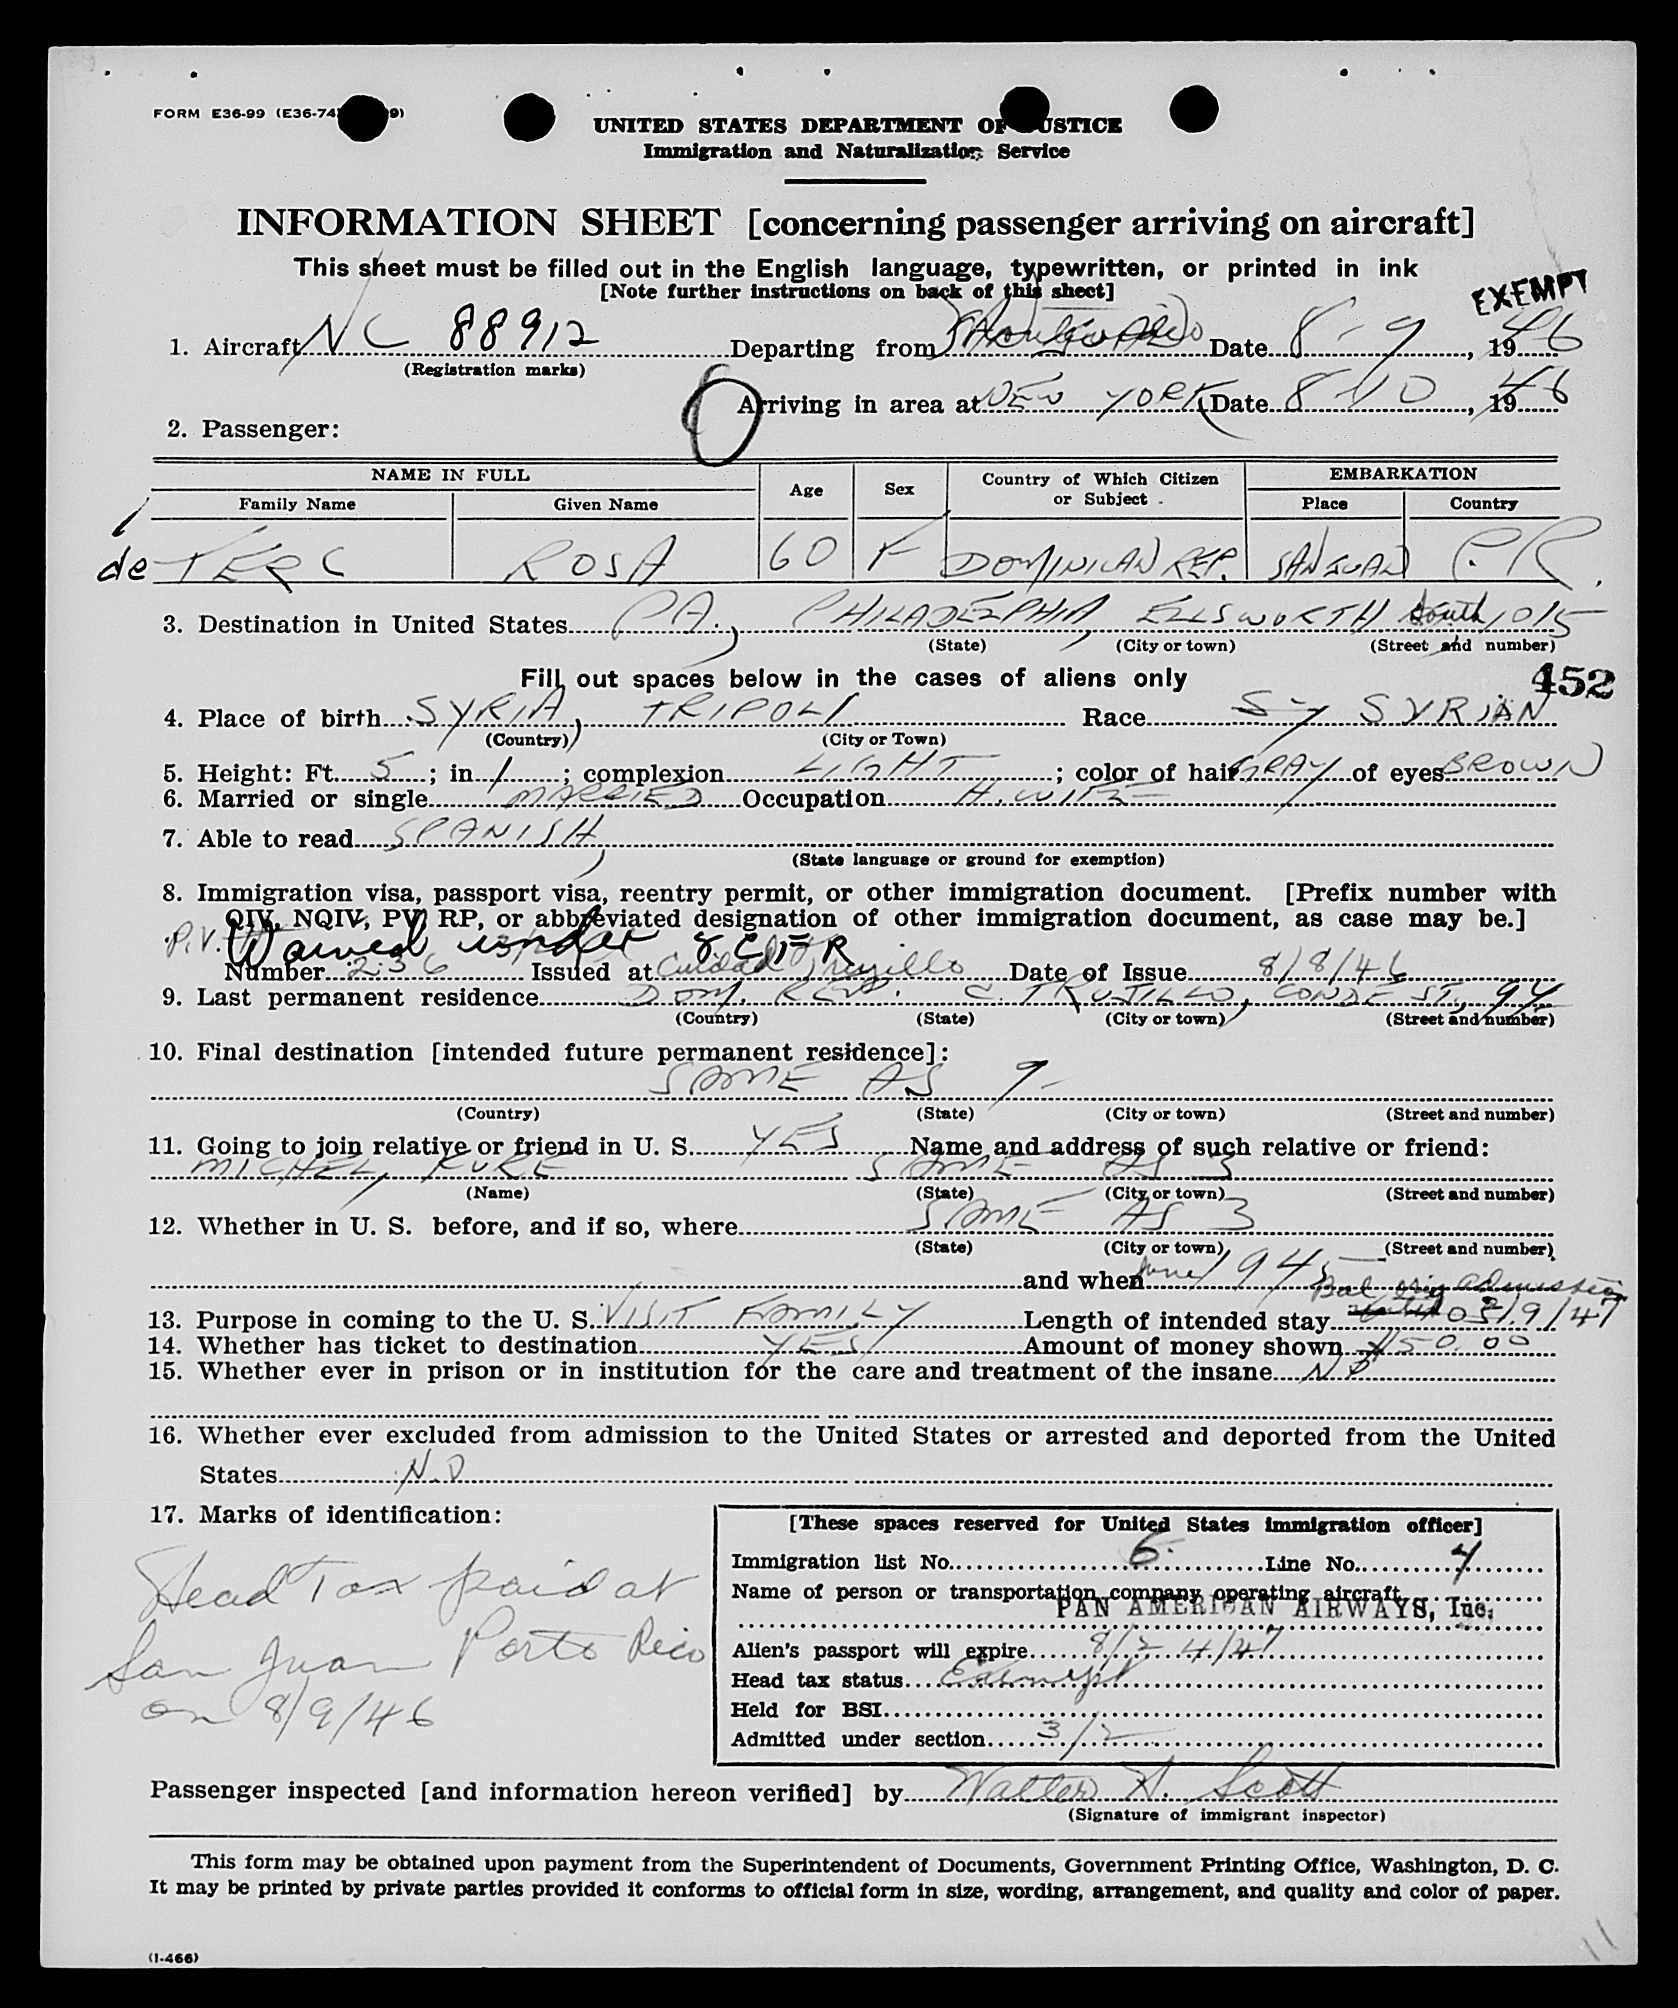 FORM E36-99 (E36-74 9)
UNITED STATES DEPARTMENT OF JUSTICE
Immigration and Naturalization Service
INFORMATION SHEET [concerning passenger arriving on aircraft]
This sheet must be filled out in the English language, typewritten, or printed in ink
[Note further instructions on back of this sheet]
EXEMPT
1. Aircraft NC 88912 Departing from Date 8-9, 1946
(Registration marks)
Arriving in area at NEW YORK Date 8-10, 1946
2. Passenger:
NAME IN FULL Age Sex Country of Which Citizen or Subject EMBARKATION
Family Name Given Name Place Country
de TERC ROSA 60 F DOMINICAN REP. SAN JUAN P.R.
3. Destination in United States PA., PHILADELPHIA, ELLSWORTH South 1015
(State) (City or town) (Street and number)
Fill out spaces below in the cases of aliens only
452
4. Place of birth SYRIA, TRIPOLI Race Sy SYRIAN
(Country) (City or Town)
5. Height: Ft. 5; in. 1; complexion LIGHT; color of hair GRAY of eyes BROWN
6. Married or single MARRIED Occupation H. WIFE
7. Able to read SPANISH
(State language or ground for exemption)
8. Immigration visa, passport visa, reentry permit, or other immigration document. [Prefix number with
QIV, NQIV, PV, RP, or abbreviated designation of other immigration document, as case may be.]
P.V. Waived under 8 CFR
Number 236 Issued at Cuidad Trujillo Date of Issue 8/8/46
9. Last permanent residence DOM. REP. C. TRUJILLO, CONDE ST., 94
(Country) (State) (City or town) (Street and number)
10. Final destination [intended future permanent residece]:
SAME AS 9-
(Country) (State) (City or town) (Street and number)
11. Going to join relative or friend in U. S. YES Name and address of such relative or friend:
MICHEL, KURE SAME AS 3
(Name) (State) (City or town) (Street and number)
12. Whether in U. S. before, and if so, where SAME AS 3
(State) (City or town) (Street and number)
and when June 1945
Bal orig admission
13. Purpose in coming to the U. S. VISIT FAMILY Length of intended stay 2/9/47
14. Whether has ticket to destination YES Amount of money shown $50.00
15. Whether ever in prison or in institution for the care and treatment of the insane NO
16. Whether ever excluded from admission to the United States or arrested and deported from the United
States N.O
17. Marks of identification:
Head Tax paid at
San Juan Porto Rico
on 8/9/46
[These spaces reserved for United States immigration officer]
Immigration list No. 6 Line No. 4
Name of person or transportation company operating aircraft
PAN AMERICAN AIRWAYS, Inc.
Alien's passport will expire 8/24/47
Head tax status Exempt
Held for BSI
Admitted under section 3/2
Passenger inspected [and information hereon verified] by Walter A. Scott
(Signature of immigrant inspector)
This form may be obtained upon payment from the Superintendent of Documents, Government Printing Office, Washington, D. C.
It may be printed by private parties provided it conforms to official form in size, wording, arrangement, and quality and color of paper.
(I-466)
11